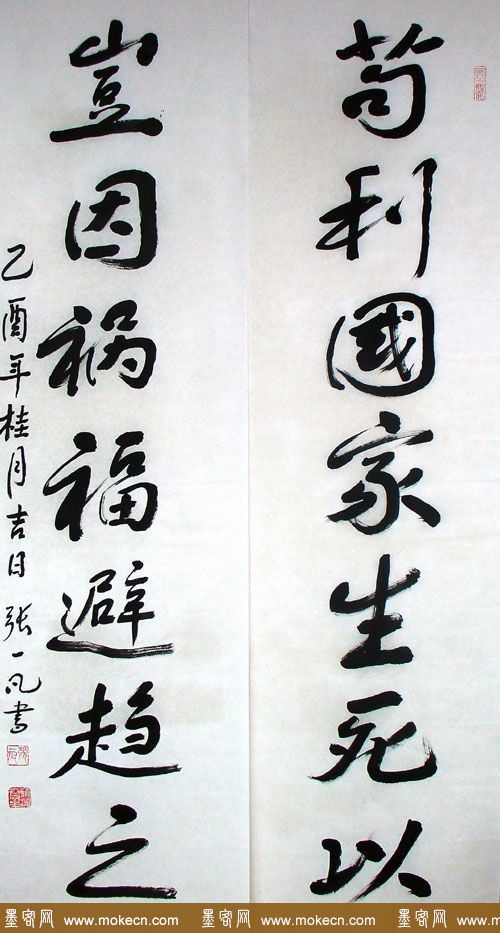 苟利國家生死以
豈因祸福避趋之
乙酉年桂月吉日 张一凡書
墨客网 www.mokecn.com 墨客网 www.mokecn.com 墨客网 www.m